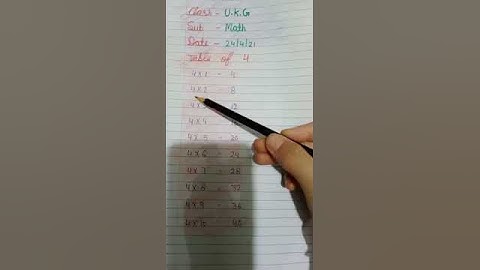 Class - U.K.G
Sub - Math
Date - 24/4/21
Table of 4
4x1 - 4
4x2 - 8
4x3 - 12
4x4
4x5 - 20
4x6 - 24
4x7 - 28
4x8 - 32
4x9 - 36
4x10 - 40